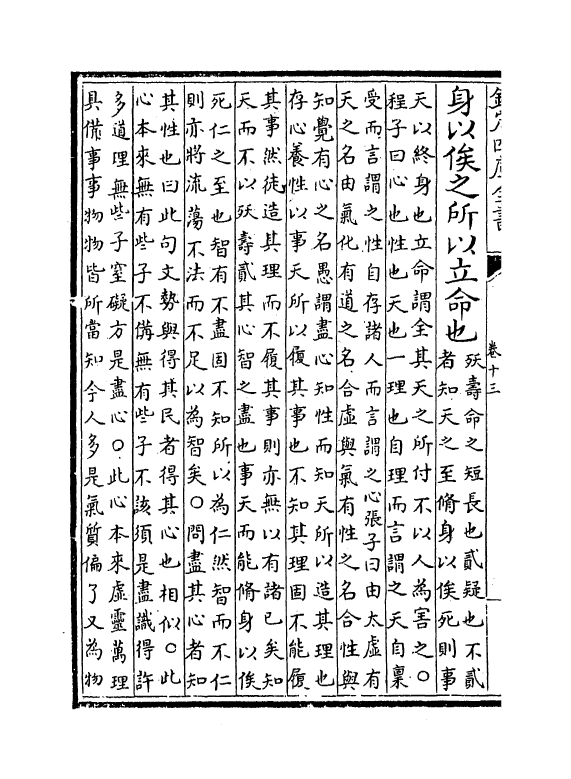 欽定四庫全書
卷十三
身以俟之所以立命也
殀壽命之短長也貳疑也不貳
者知天之至脩身以俟死則事
天以終身也立命謂全其天之所付不以人為害之○
程子曰心也性也天也一理也自理而言謂之天自稟
受而言謂之性自存諸人而言謂之心張子曰由太虛有
天之名由氣化有道之名合虛與氣有性之名合性與
知覺有心之名愚謂盡心知性而知天所以造其理也
存心養性以事天所以履其事也不知其理固不能履
其事然徒造其理而不履其事則亦無以有諸已矣知
天而不以殀壽貳其心智之盡也事天而能脩身以俟
死仁之至也智有不盡固不知所以為仁然智而不仁
則亦將流蕩不法而不足以為智矣○問盡其心者知
其性也曰此句文勢與得其民者得其心也相似○此
心本來無有些子不備無有些子不該須是盡識得許
多道理無些子窒礙方是盡心○此心本來虛靈萬理
具備事事物物皆所當知今人多是氣質偏了又為物